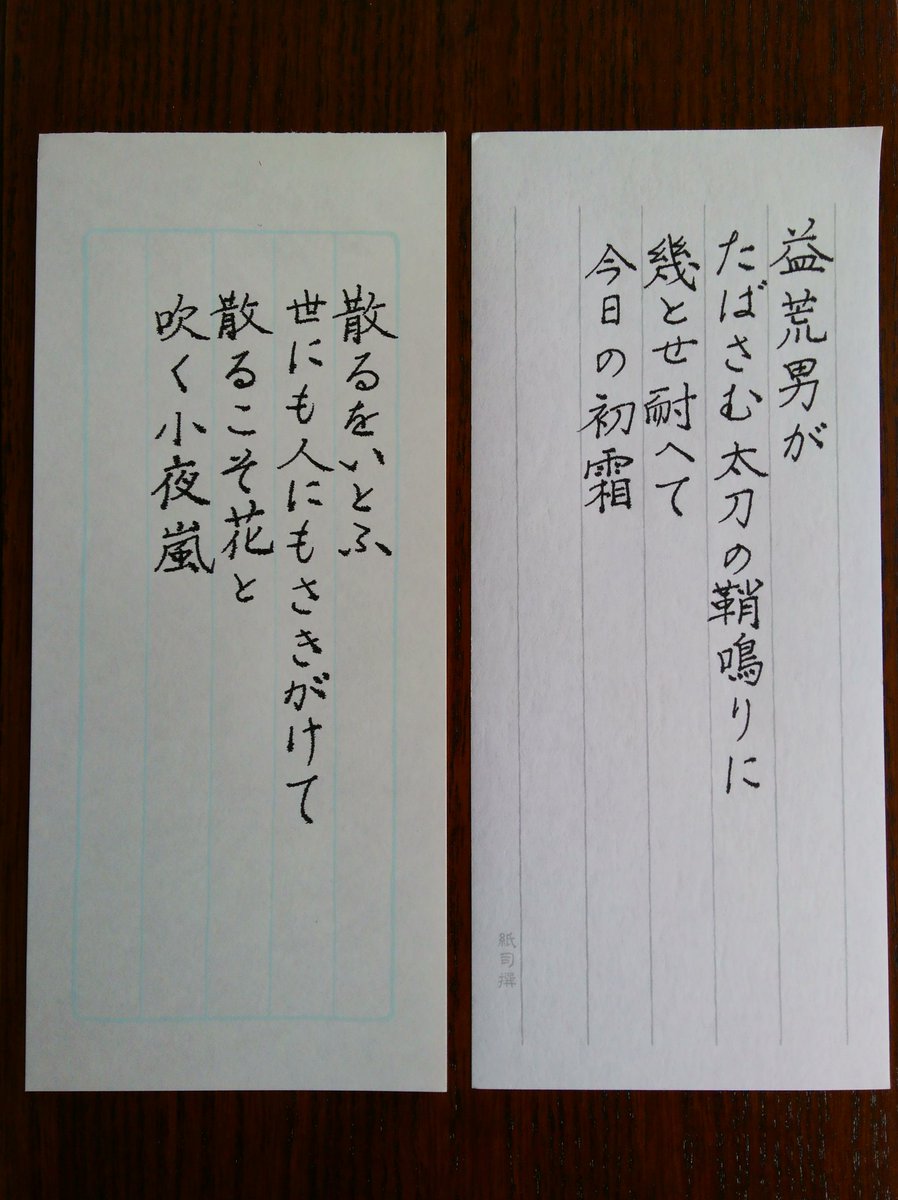 益荒男が
たばさむ太刀の鞘鳴りに
幾とせ耐へて
今日の初霜
紙司撰
散るをいとふ
世にも人にもさきがけて
散るこそ花と
吹く小夜嵐